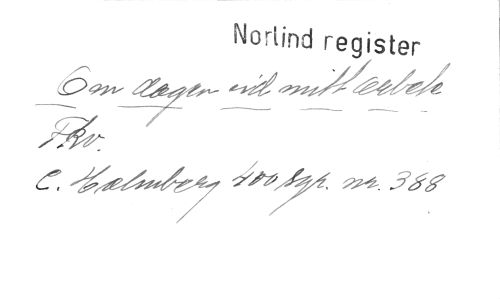 Norlind register
Om dagen vid mitt arbete
F.kv.
C. Holmberg 400 sgr. nr. 388